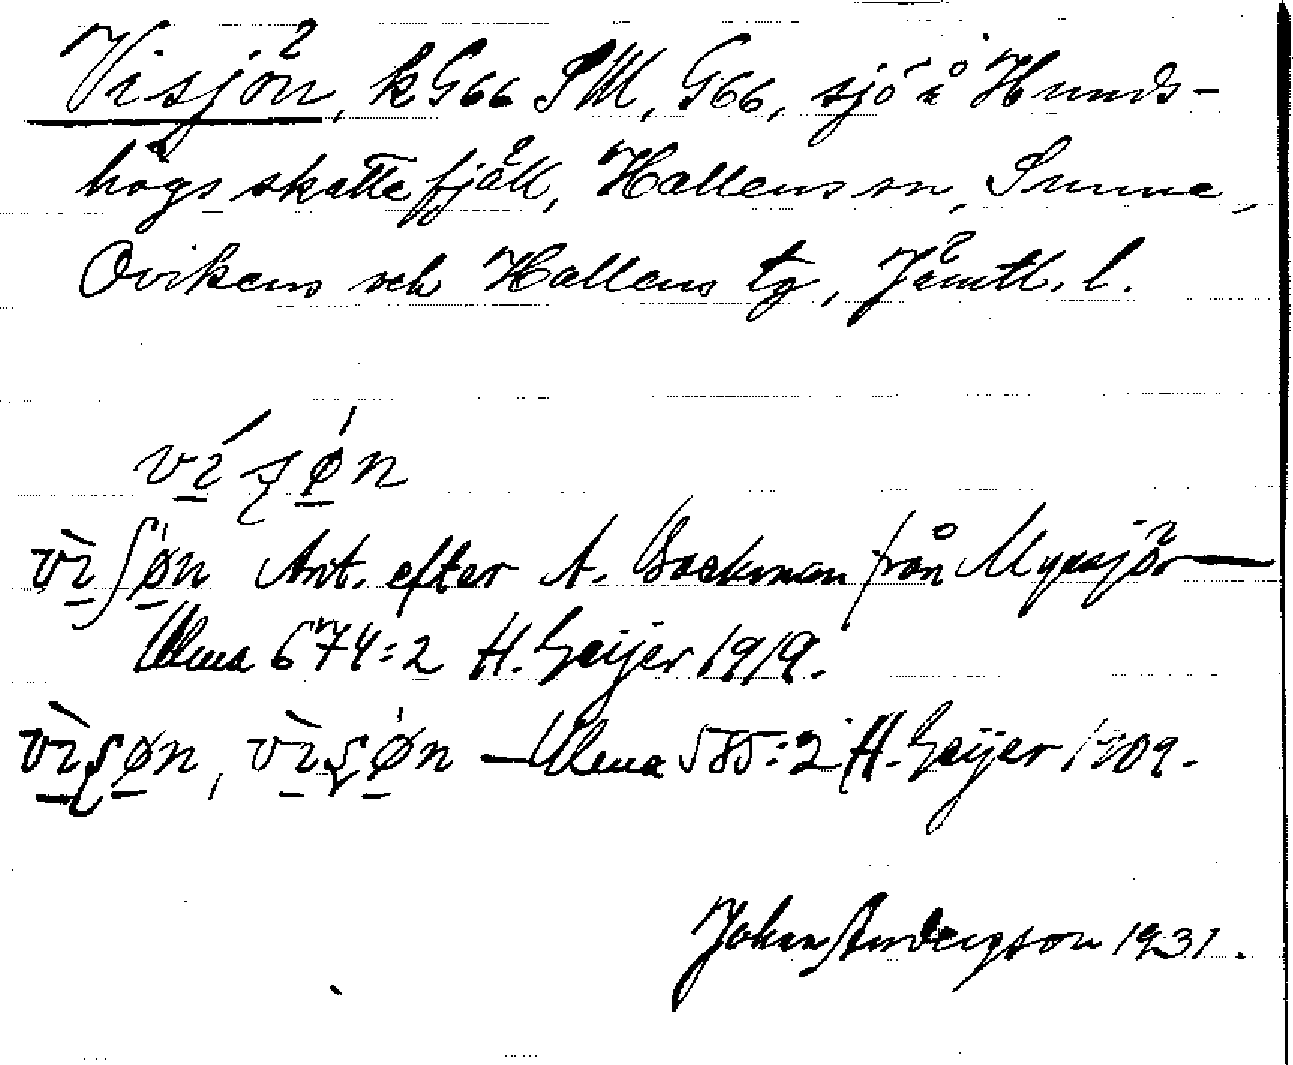 Visjön, k G66 SM, G66, sjö i Hunds-
högs skattefjäll, Hallens sn, Sunne,
Ovikens och Hallens tg, Jämtl. l.
Ant. efter A. Backman från Myssjö —
Ulma 674:2 H. Geijer 1919.
— Ulma 585:2 H. Geijer 1909.
Johan Anderson 1931.